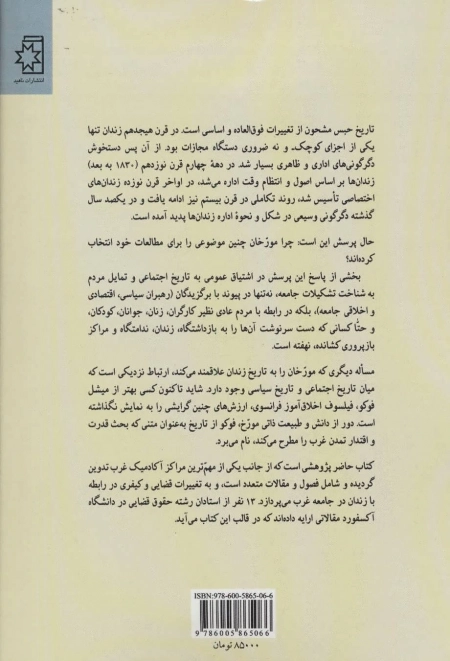 انتشارات ناهید
تاریخ حبس مشحون از تغییرات فوق‌العاده و اساسی است. در قرن هیجدهم زندان تنها
یکی از اجزای کوچک- و نه ضروری دستگاه مجازات بود. از آن پس دستخوش
دگرگونی‌های اداری و ظاهری بسیار شد. در دههٔ چهارم قرن نوزدهم (۱۸۳۰ به بعد)
زندان‌ها بر اساس اصول و انتظام وقت اداره می‌شد، در اواخر قرن نوزده زندان‌های
اختصاصی تأسیس شد، روند تکاملی در قرن بیستم نیز ادامه یافت و در یکصد سال
گذشته دگرگونی وسیعی در شکل و نحوهٔ اداره زندان‌ها پدید آمده است.
حال پرسش این است: چرا مورّخان چنین موضوعی را برای مطالعات خود انتخاب
کرده‌اند؟
بخشی از پاسخ این پرسش در اشتیاق عمومی به تاریخ اجتماعی و تمایل مردم
به شناخت تشکیلات جامعه، نه‌تنها در پیوند با برگزیدگان (رهبران سیاسی، اقتصادی
و اخلاقی جامعه)، بلکه در رابطه با مردم عادی نظیر کارگران، زنان، جوانان، کودکان،
و حتّا کسانی که دست سرنوشت آن‌ها را به بازداشتگاه، زندان، ندامتگاه و مراکز
بازپروری کشانده، نهفته است.
مسأله دیگری که مورّخان را به تاریخ زندان علاقمند می‌کند، ارتباط نزدیکی است که
میان تاریخ اجتماعی و تاریخ سیاسی وجود دارد. شاید تاکنون کسی بهتر از میشل
فوکو، فیلسوف اخلاق‌آموز فرانسوی، ارزش‌های چنین گرایشی را به نمایش نگذاشته
است. دور از دانش و طبیعت ذاتی مورّخ، فوکو از تاریخ به‌عنوان متنی که بحث قدرت
و اقتدار تمدن غرب را مطرح می‌کند، نام می‌برد.
کتاب حاضر پژوهشی است که از جانب یکی از مهم‌ترین مراکز آکادمیک غرب تدوین
گردیده و شامل فصول و مقالات متعدد است، و به تغییرات قضایی و کیفری در رابطه
با زندان در جامعه غرب می‌پردازد. ۱۳ نفر از استادان رشته حقوق قضایی در دانشگاه
آکسفورد مقالاتی ارایه داده‌اند که در قالب این کتاب می‌آید.
ISBN:978-600-5865-06-6
9 786005 865066
۸۵۰۰۰ تومان